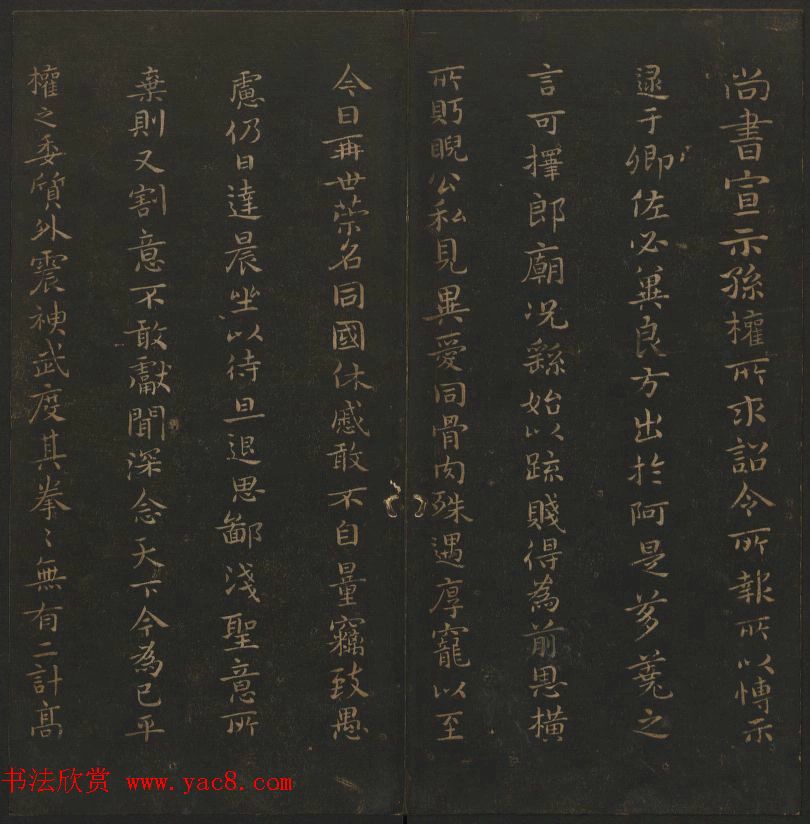 尚書宣示孫權所求詔令所報所以博示
逮于卿佐必冀良方出於阿是芻蕘之
言可擇郎廟況繇始以疏賤得為前恩橫
所盻睨公私見異愛同骨肉殊遇厚寵以至
今日再世荣名同國休慼敢不自量竊致愚
慮仍日達晨坐以待旦退思鄙淺聖意所
棄則又割意不敢獻聞深念天下今為已平
權之委質外震神武度其拳〻無有二計高
书法欣赏 www.yac8.com